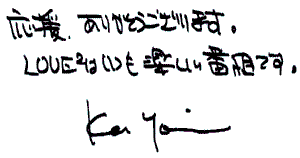 応援、ありがとうございます。
LOVE²はいつも楽しい番組です。